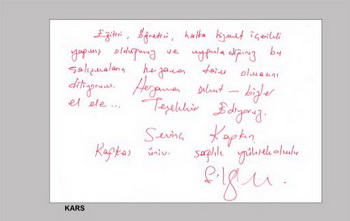 Eğitici, Öğretici, halka hizmet içerikli
yapmış olduğunuz ve uyguladığınız bu
çalışmaların herzaman daim olmasını
diliyorum. Herzaman umut — bizler
el ele... Teşekkür Ediyoruz.
Sevinç Kapkın
Kafkas üniv. sağlık yüksekokulu
KARS